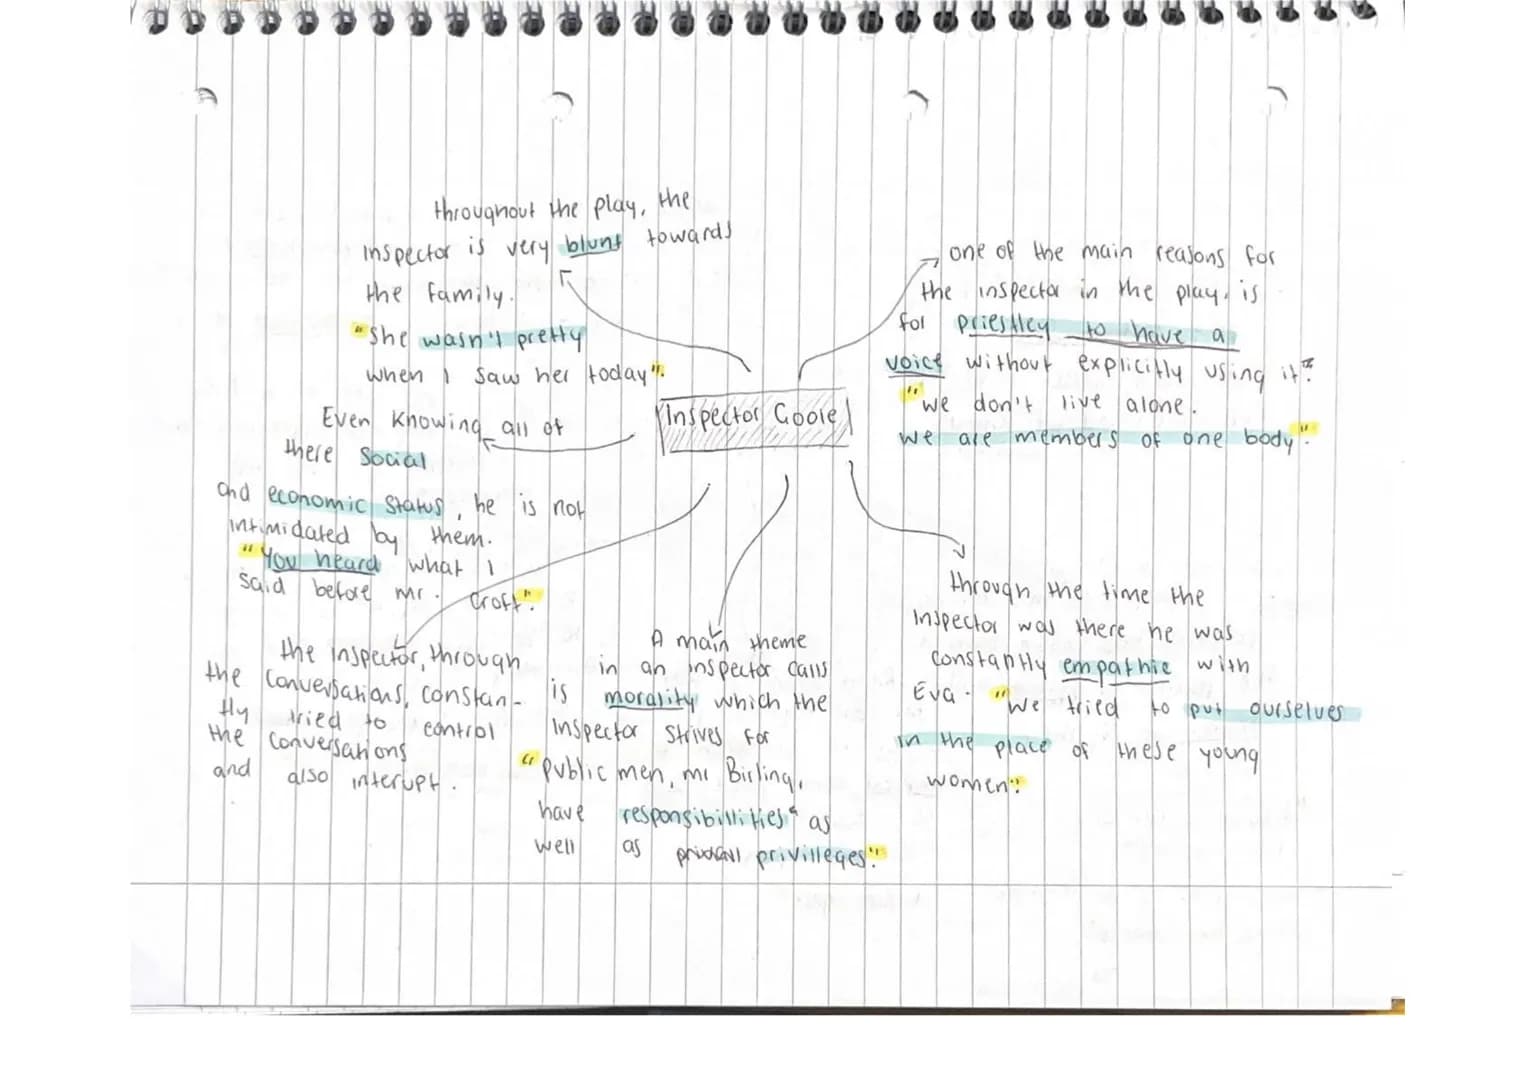 Inspector Goole
throughout the play, the
Inspector is very blunt towards
the family.
"She wasn't pretty
when I saw her today".
Even knowing all of
there social
and economic status, he is not
intimidated by them.
"You heard what I
said before mr. Croft".
the inspector, through
the conversations, constan-
tly tried to control
the conversations
and also interupt.
A main theme
in an inspector calls
is morality which the
Inspector strives for
"public men, mr Birling,
have responsibillities as
well as privilleges".
one of the main reasons for
the inspector in the play, is
for priestley to have a
voice without explicitly using it.
"we don't live alone.
we are members of one body".
through the time the
Inspector was there he was
constantly empathic with
Eva. "we tried to put ourselves
in the place of these young
women".